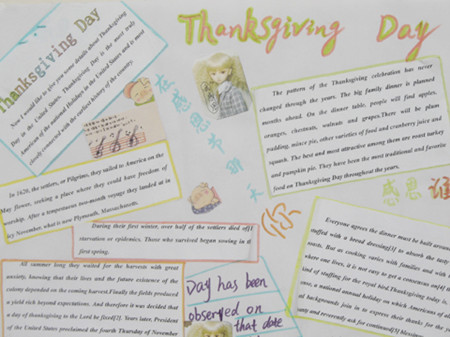 Thanksgiving Day
Now I would like to give you some details about Thanksgiving
Day in the United States. Thanksgiving Day is the most truly
American of the national Holidays in the United States and is most
closely connected with the earliest history of the country.
In 1620, the settlers, or Pilgrims, they sailed to America on the
May flower, seeking a place where they could have freedom of
worship. After a tempestuous two-month voyage they landed at in
icy November, what is now Plymouth, Massachusetts.
During their first winter, over half of the settlers died of
starvation or epidemics. Those who survived began sowing in the
first spring.
All summer long they waited for the harvests with great
anxiety, knowing that their lives and the future existence of the
colony depended on the coming harvest. Finally the fields produced
a yield rich beyond expectations. And therefore it was decided that
a day of thanksgiving to the Lord be fixed[2]. Years later, President
of the United States proclaimed the fourth Thursday of November
Day has been
observed on
that date
在感恩节那天
Thanksgiving Day
The pattern of the Thanksgiving celebration has never
changed through the years. The big family dinner is planned
months ahead. On the dinner table, people will find apples,
oranges, chestnuts, walnuts and grapes. There will be plum
pudding, mince pie, other varieties of food and cranberry juice and
squash. The best and most attractive among them are roast turkey
and pumpkin pie. They have been the most traditional and favorite
food on Thanksgiving Day throughout the years.
你
感恩谁
Everyone agrees the dinner must be built around
stuffed with a bread dressing[3] to absorb the tasty
roasts. But as cooking varies with families and with
where one lives, it is not easy to get a consensus on[4]
kind of stuffing for the royal bird. Thanksgiving today is,
case, a national annual holiday on which Americans of
backgrounds join in to express their thanks for the
and reverently ask for continued[5] blessings